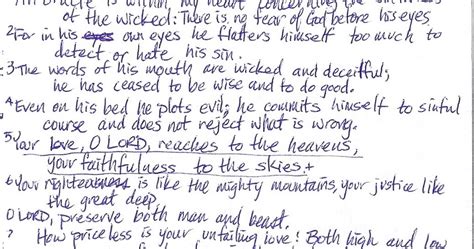 An oracle is within my heart concerning the sinfulness
of the wicked: There is no fear of God before his eyes
2 For in his eyes own eyes he flatters himself too much to
detect or hate his sin.
3 The words of his mouth are wicked and deceitful;
he has ceased to be wise and to do good.
4 Even on his bed he plots evil; he commits himself to sinful
course and does not reject what is wrong.
5 Your love, O LORD, reaches to the heavens,
your faithfulness to the skies.+
6 Your righteousness is like the mighty mountains, your justice like
the great deep.
O LORD, preserve both man and beast.
7 How priceless is your unfailing love! Both high and low